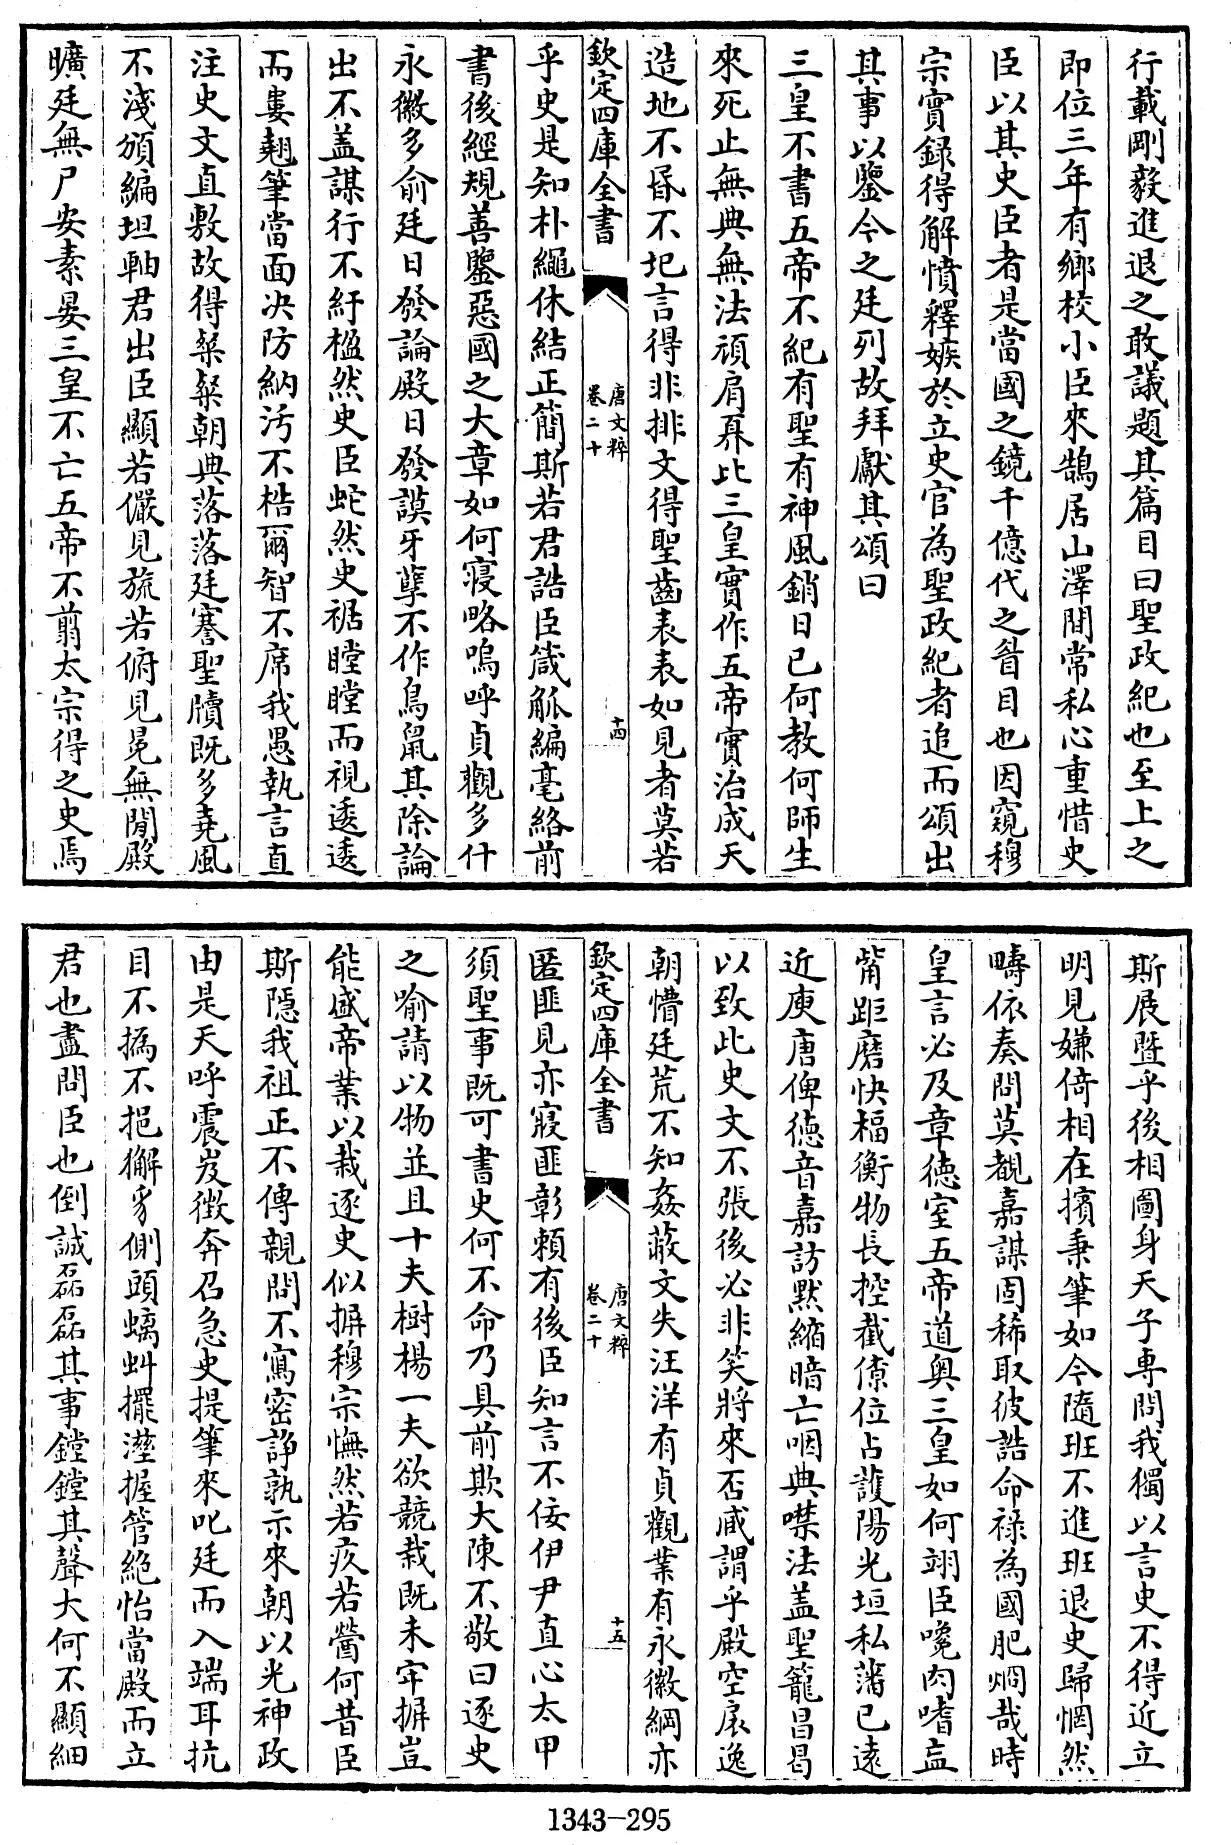 行載剛毅進退之敢議題其篇目曰聖政紀也至上之
即位三年有鄉校小臣來鵠居山澤間常私心重惜史
臣以其史臣者是當國之鏡千億代之眉目也因窺穆
宗實錄得解憤釋嫉於立史官為聖政紀者追而頌出
其事以鑒今之廷列故拜獻其頌曰
三皇不書五帝不紀有聖有神風銷日已何教何師生
來死止無典無法頑肩奡比三皇實作五帝實治成天
造地不昏不圮言得非排文得聖齒表表如見者莫若
欽定四庫全書
唐文粹
卷二十
十四
乎史是知朴繩休結正簡斯若君誥臣箴觚編毫絡前
書後經規善鑒惡國之大章如何寢略嗚呼貞觀多什
永徽多俞廷日發論殿日發謨牙孽不作鳥鼠其除論
出不蓋謀行不紆楹然史臣蛇然史裾瞠瞠而視逶逶
而婁翹筆當面決防納污不梏爾智不席我愚執言直
注史文直敷故得粲粲朝典落落廷謇聖牘既多堯風
不淺頒編坦軸君出臣顯若儼見旒若俯見冕無閒殿
曠廷無尸安素晏三皇不亡五帝不翦太宗得之史焉
斯展暨乎後相圖身天子專問我獨以言史不得近立
明見嫌倚相在擯秉筆如今隨班不進班退史歸惘然
疇依奏問莫覩嘉謀固稀取彼誥命祿為國肥烱哉時
皇言必及章德室五帝道奧三皇如何翊臣嚵肉嗜衁
觜距磨快楅衡物長控截僚位占護陽光垣私藩已遠
近庾唐俾德音嘉訪默縮暗亡咽典噤法蓋聖籠昌曷
以致此史文不張後必非笑將來否臧謂乎殿空扆逸
朝懵廷荒不知姦蔽文失汪洋有貞觀業有永徽綱亦
欽定四庫全書
唐文粹
卷二十
十五
匿匪見亦寢匪彰賴有後臣知言不佞伊尹直心太甲
須聖事既可書史何不命乃具前欺大陳不敬曰逐史
之喻請以物並且十夫樹楊一夫欲競栽既未牢摒豈
能盛帝業以栽逐史似摒穆宗憮然若疚若瞢何昔臣
斯隱我祖正不傳親問不寫密諍孰示來朝以光神政
由是天呼震岌徵奔召急史提筆來叱廷而入端耳抗
目不撝不挹獬豸側頭螭虯擺溼握管絕怡當殿而立
君也盡問臣也倒誠磊磊其事鏜鏜其聲大何不顯細
1343-295